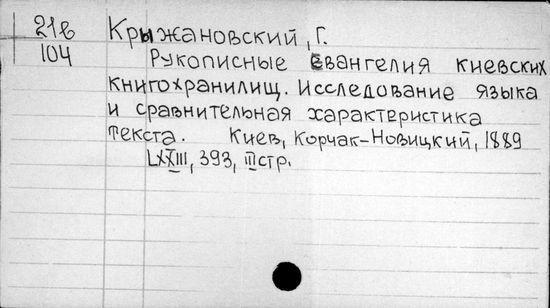 21в Крыжановский, Г.
104 Рукописные Евангелия киевских
книгохранилищ. Исследование языка
и сравнительная характеристика
текста. Киев, Корчак-Новицкий, 1889
LXXIII, 393, III стр.